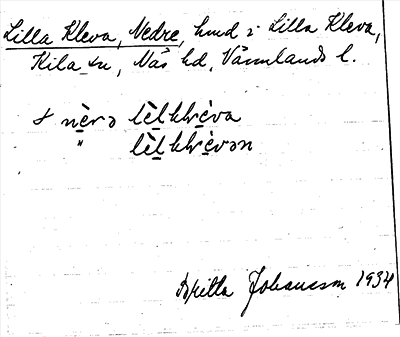 Lilla Kleva, Nedre, hmd i Lilla Kleva,
Kila sn, Näs hd, Värmlands l.
nèrə lèlkhlèva
" lèlkhlèvən
Britta Johansson 1934